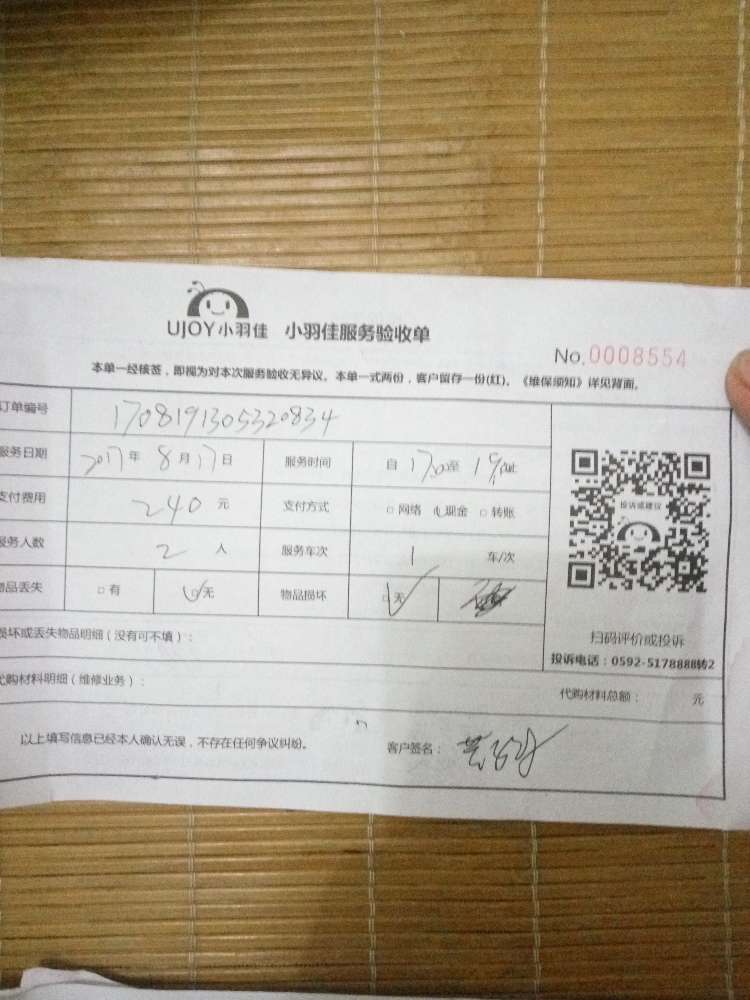 UJOY小羽佳 小羽佳服务验收单
No.0008554
本单一经核签，即视为对本次服务验收无异议。本单一式两份，客户留存一份(红)。《维保须知》详见背面。
订单编号 1708191305320834
服务日期 2017年8月17日 服务时间 自17:00至19
支付费用 240元 支付方式 □网络 现金 □转账
服务人数 2人 服务车次 1 车/次
物品丢失 □有 □无 物品损坏 □无
投诉或建议
损坏或丢失物品明细（没有可不填）：
扫码评价或投诉
投诉电话：0592-5178888转2
代购材料明细（维修业务）：
代购材料总额： 元
以上填写信息已经本人确认无误，不存在任何争议纠纷。 客户签名：